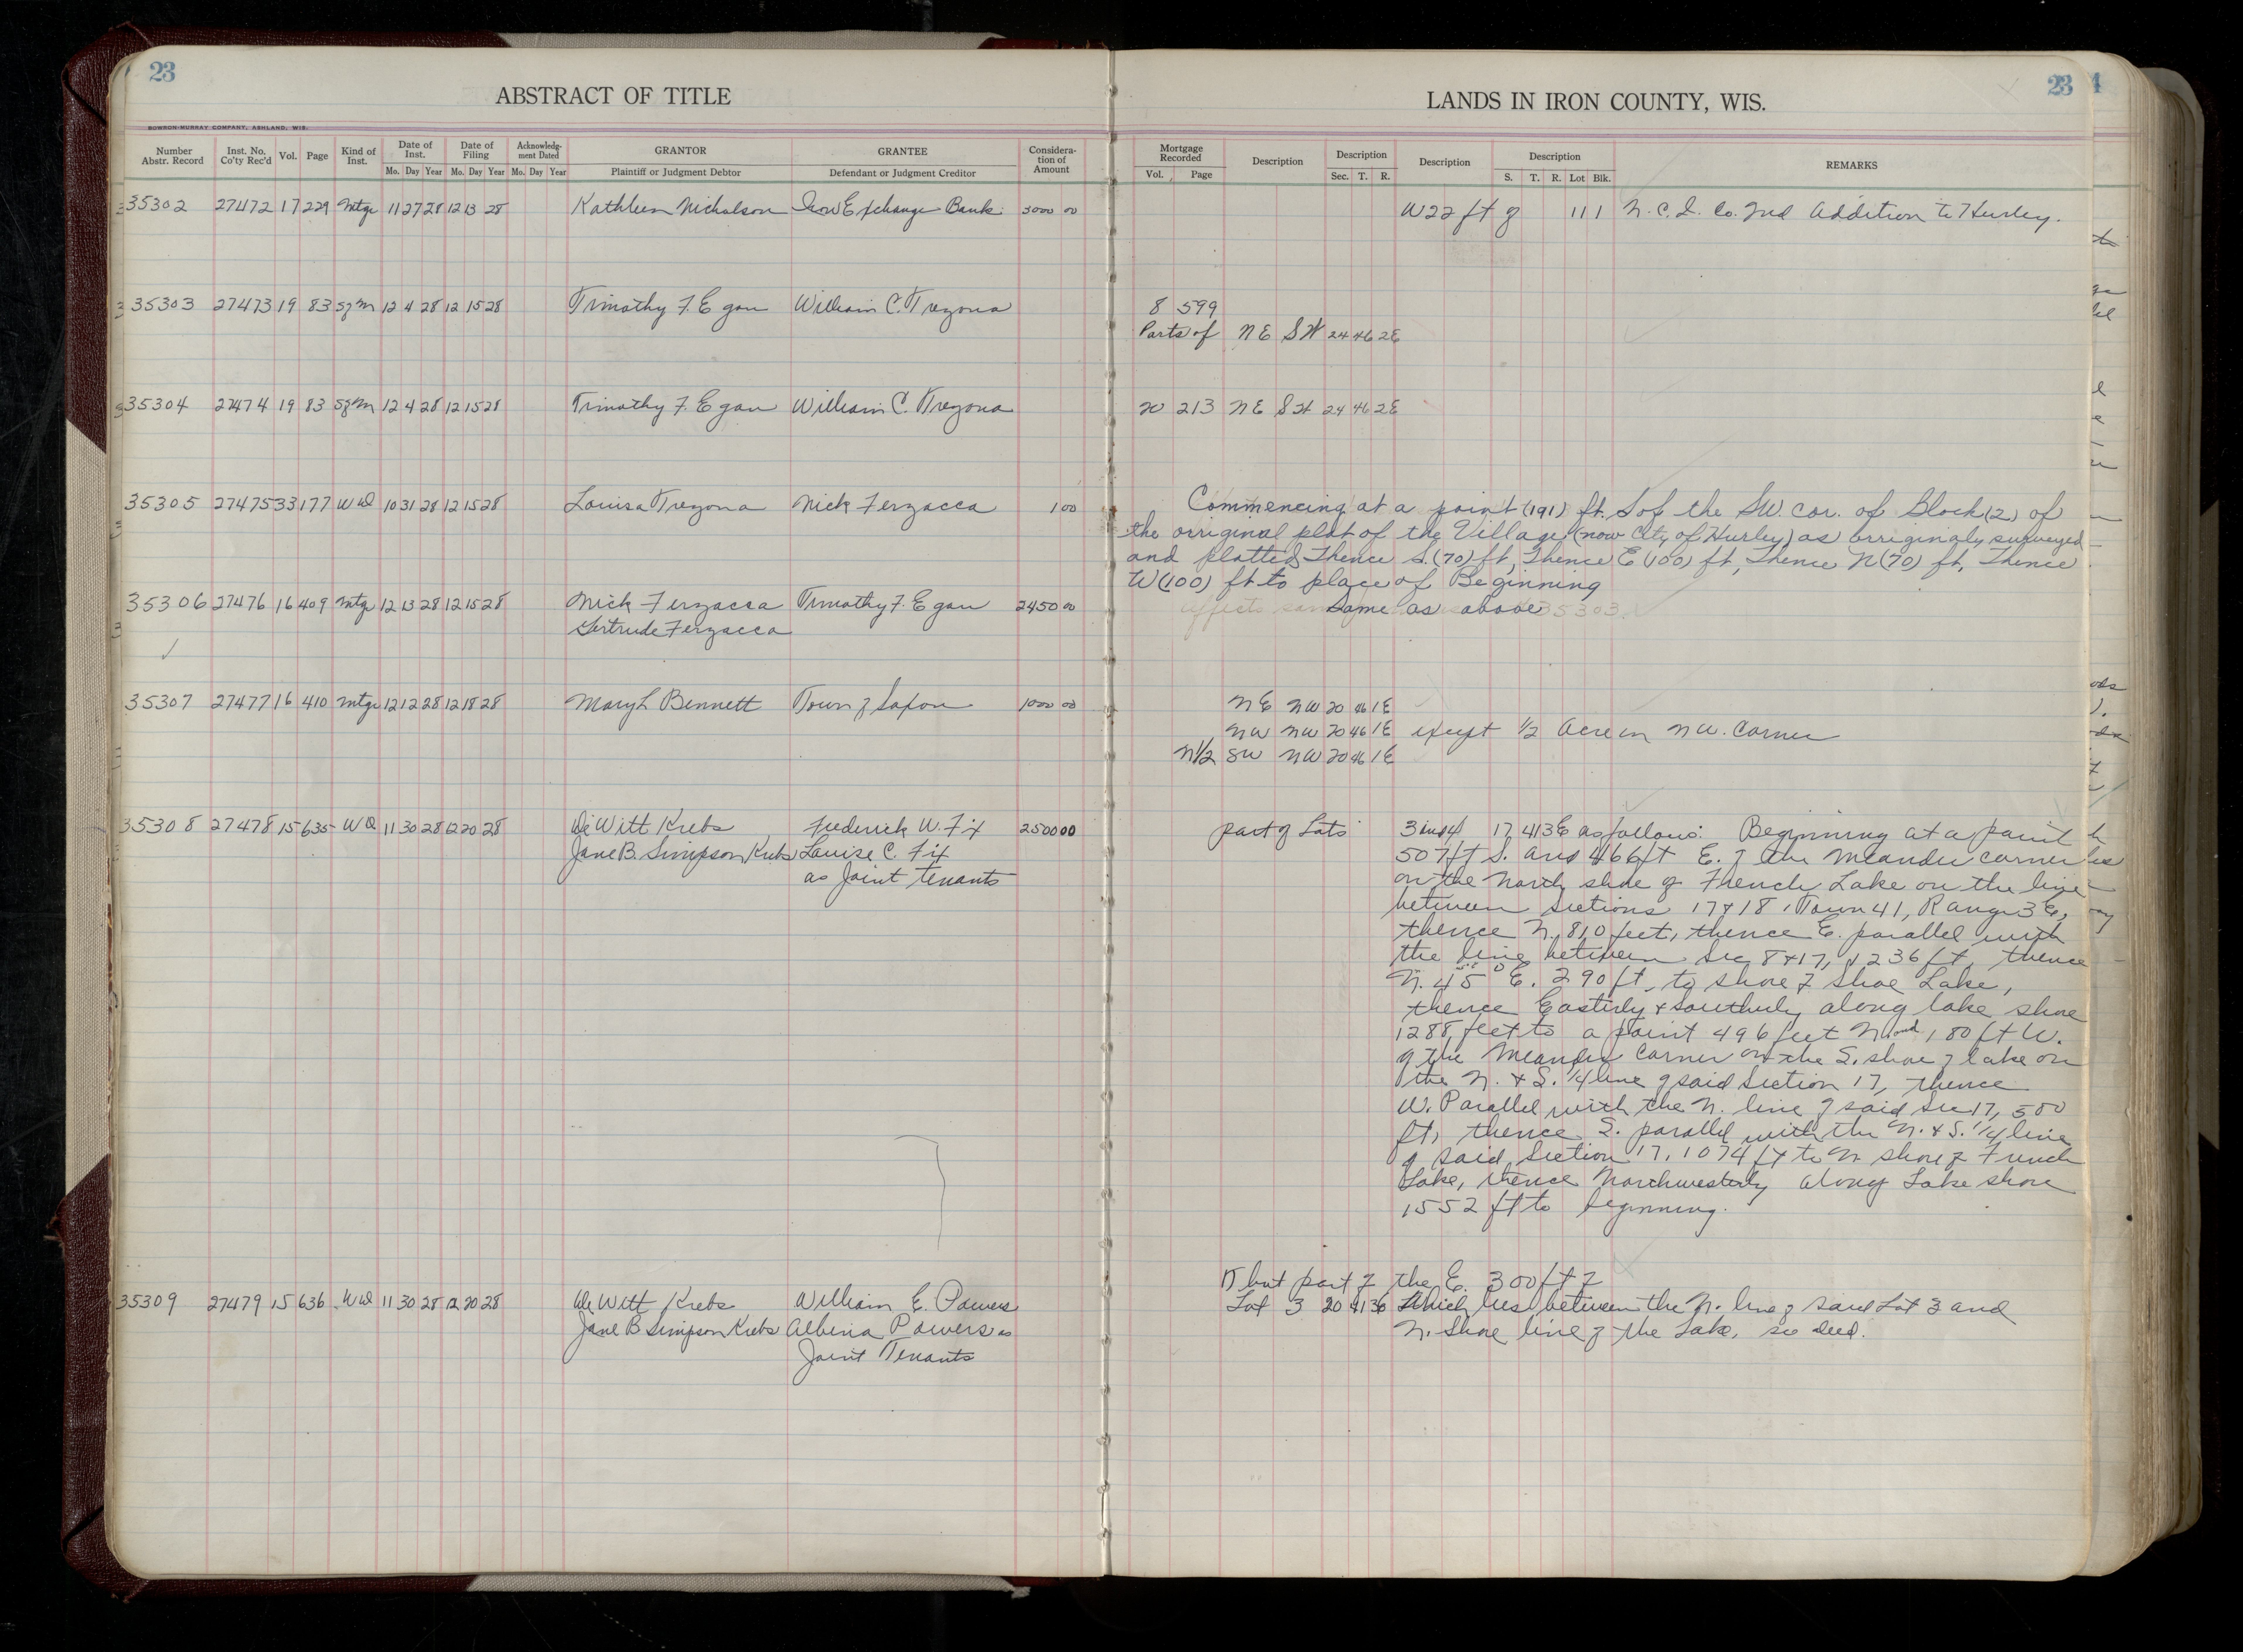 23
ABSTRACT OF TITLE
LANDS IN IRON COUNTY, WIS.
23
BOWRON-MURRAY COMPANY, ASHLAND, WIS.
Number Abstr. Record
Inst. No. Co'ty Rec'd
Vol.
Page
Kind of Inst.
Date of Inst.
Mo. Day Year
Date of Filing
Mo. Day Year
Acknowledg-ment Dated
Mo. Day Year
GRANTOR
Plaintiff or Judgment Debtor
GRANTEE
Defendant or Judgment Creditor
Considera-tion of Amount
Mortgage Recorded
Vol. Page
Description
Description
Sec. T. R.
Description
Description
S. T. R. Lot Blk.
REMARKS
35302 27472 17 229 Mtge 11 27 28 12 13 28 Kathleen Nicholson Iron Exchange Bank 3000 00 W 22 ft of 11 1 N.C.I. Co. 2nd Addition to Hurley.
35303 27473 19 83 Sg M 12 4 28 12 15 28 Timothy F. Egan William C. Trezona 8 599
Parts of NE SW 24 46 2E
35304 27474 19 83 Sg M 12 4 28 12 15 28 Timothy F. Egan William C. Trezona 20 213 NE SW 24 46 2E
35305 27475 33 177 WD 10 31 28 12 15 28 Louisa Trezona Nick Ferzacca 1 00 Commencing at a point (191) ft. S of the SW. cor. of Block (2) of
the original plat of the Village (now City of Hurley) as originaly surveyed
and platted, Thence S. (70) ft, Thence E (100) ft, Thence N (70) ft, Thence
W (100) ft to place of Beginning
35306 27476 16 409 Mtge 12 13 28 12 15 28 Nick Ferzacca Timothy F. Egan 2450 00 same as above
Gertrude Ferzacca
35307 27477 16 410 Mtge 12 12 28 12 18 28 Mary L Bennett Town of Saxon 1000 00 NE NW 20 46 1E
NW NW 20 46 1E except 1/2 Acre in NW. Corner
N1/2 SW NW 20 46 1E
35308 27478 15 635 WD 11 30 28 12 20 28 De Witt Krebs Frederick W. Fix 2500 00 part of Lots 3 and 4 17 41 3E as follows: Beginning at a point
Jane B. Simpson Krebs Louise C. Fix 507 ft S. and 466 ft E. of the Meander corner
as Joint Tenants on the North shore of French Lake on the line
between sections 17 & 18, Town 41, Range 3 E,
thence N. 810 feet, thence E. parallel with
the line between Sec 8 & 17, 1236 ft, thence
N. 45° E. 290 ft, to shore of Shoe Lake,
thence Easterly & Southerly along lake shore
1288 feet to a point 496 feet N. and 180 ft W.
of the Meander Corner on the S. shore of lake on
the N. & S. 1/4 line of said Section 17, thence
W. Parallel with the N. line of said Sec 17, 500
ft, thence S. parallel with the N. & S. 1/4 line
of said Section 17, 1074 ft to N shore of French
Lake, thence Northwesterly along Lake shore
1552 ft to beginning.
That part of the E. 300 ft of
35309 27479 15 636 WD 11 30 28 12 20 28 De Witt Krebs William E. Powers Lot 3 20 41 3E Which lies between the N. line of said Lot 3 and
Jane B Simpson Krebs Albina Powers as N. Shore line of the Lake, see deed.
Joint Tenants